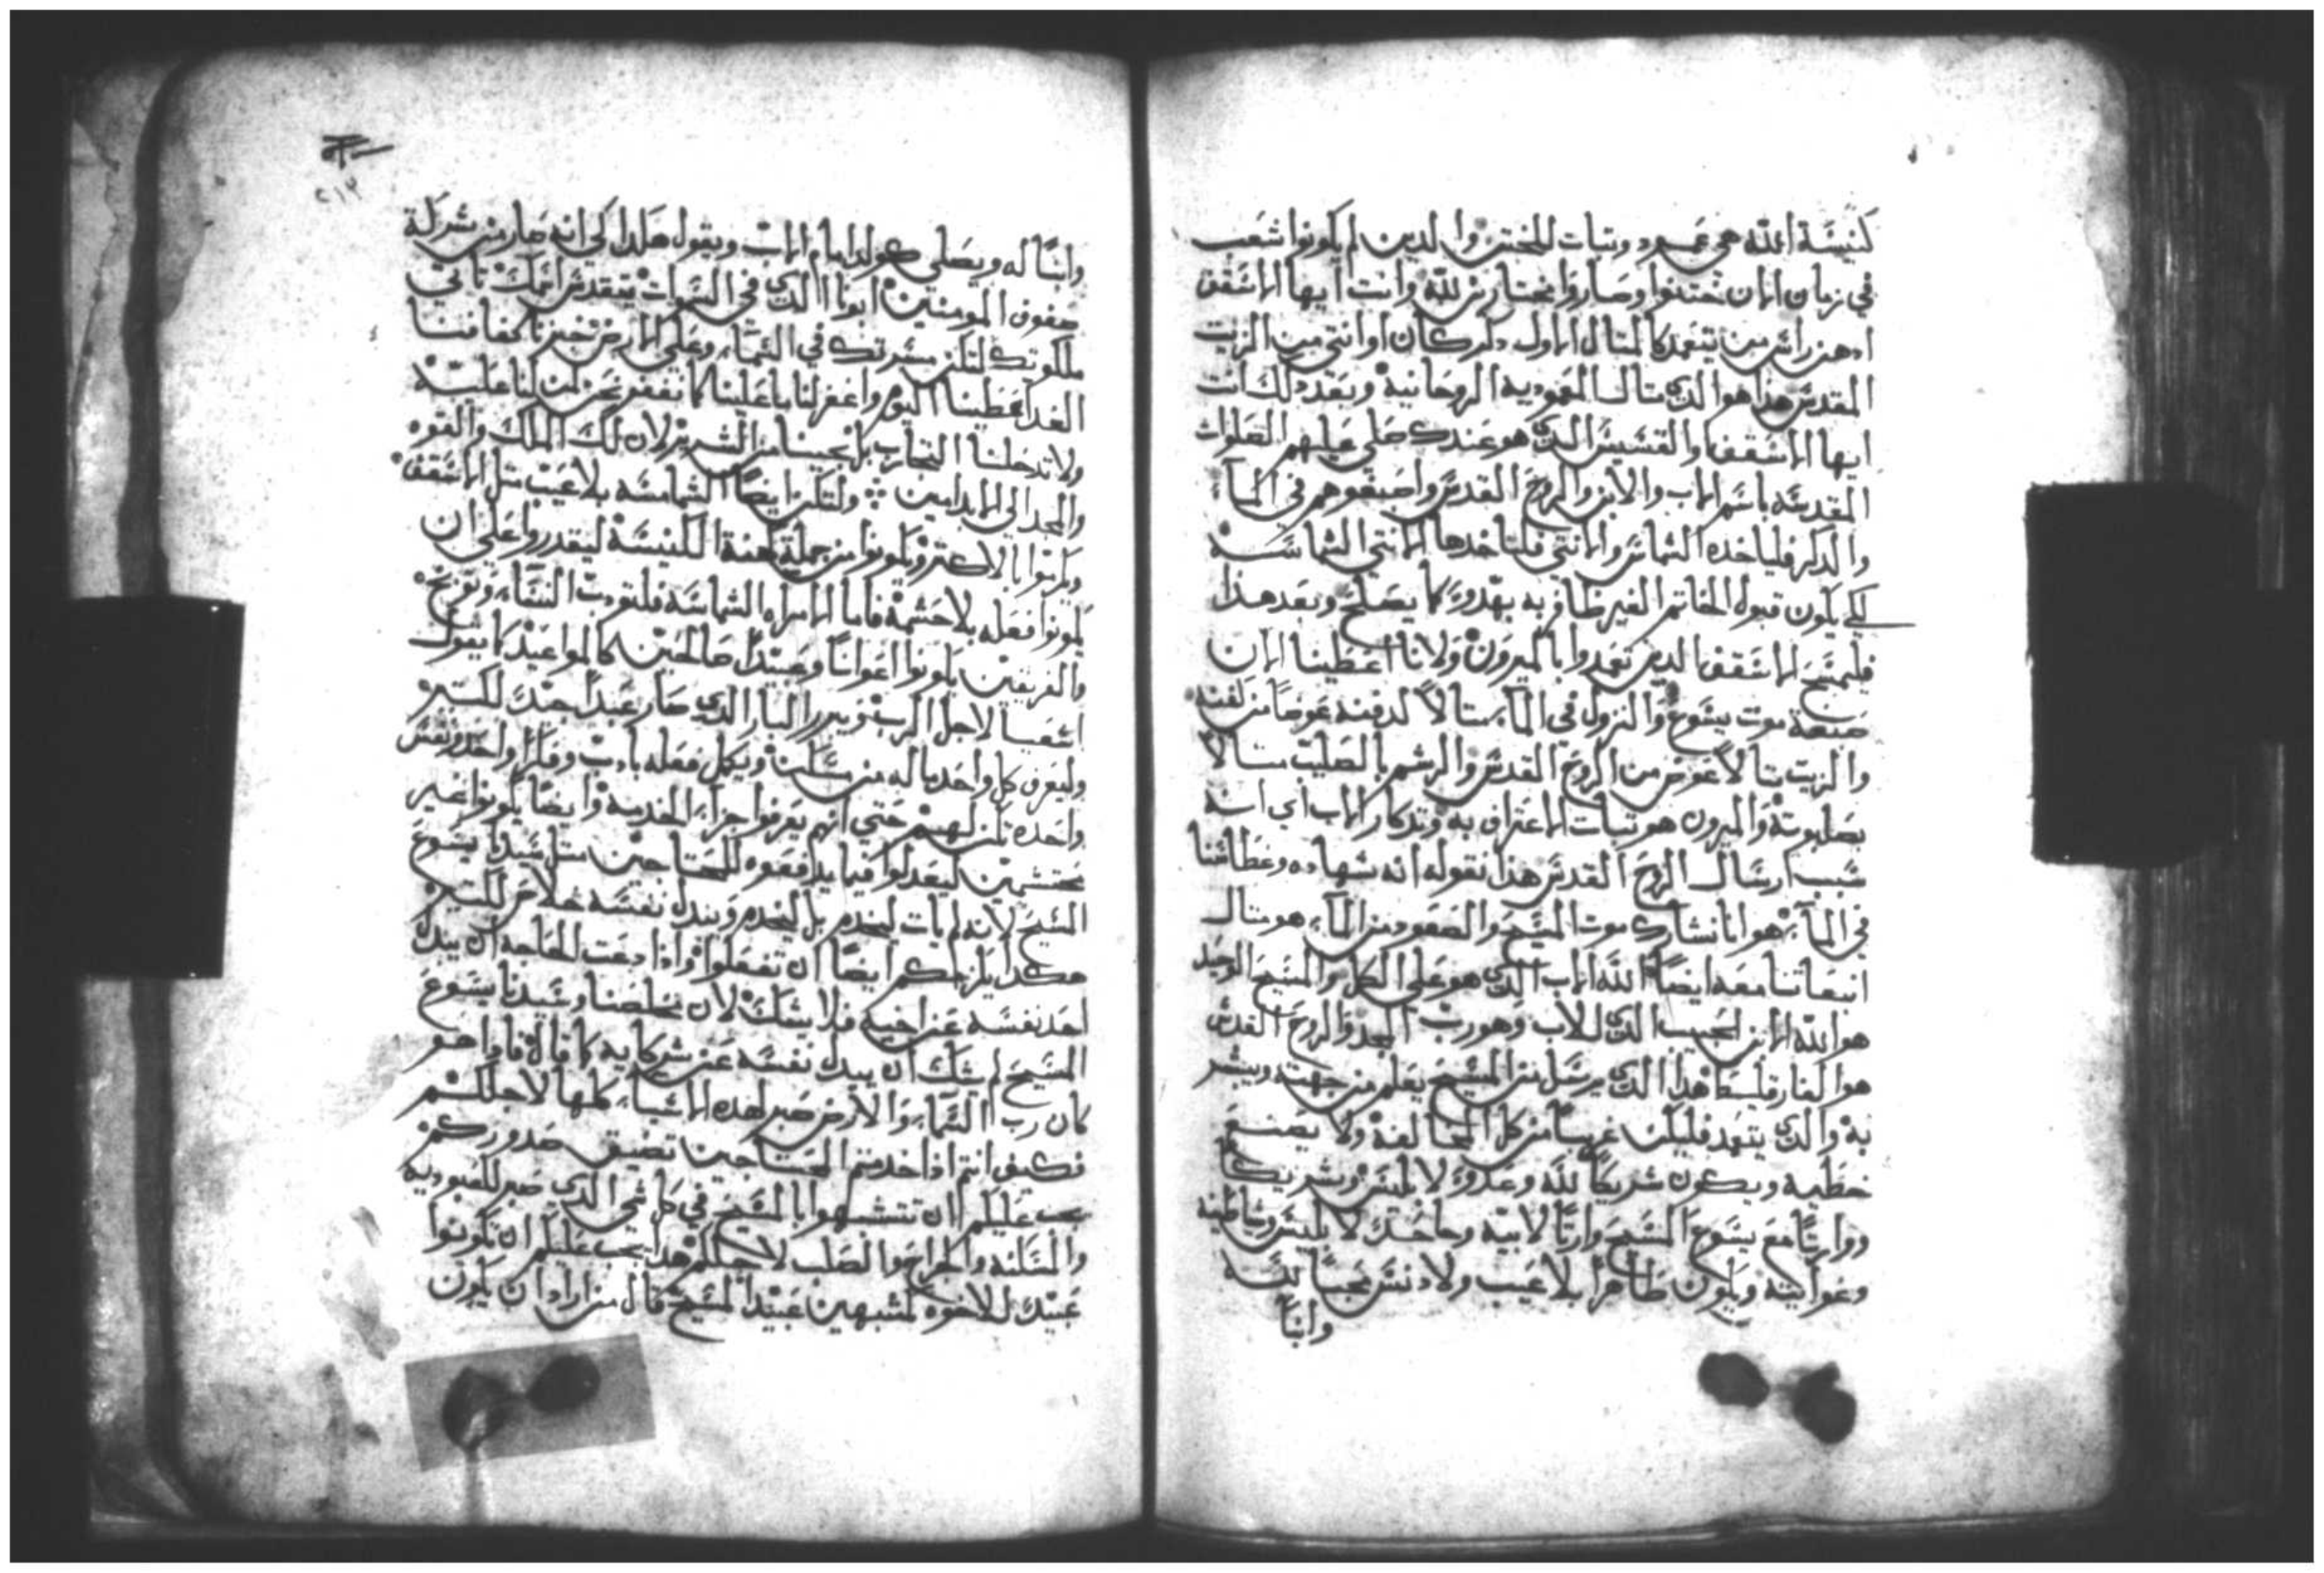 كنيسة الله هي عمود وتبات للمختنن والدين لم يكونوا شعب
في زمان الان ختنوا وصاروا مختارين لله وانت ايها الاسقف
ادهن راس من يتعمد كالمتال الاول دكر كان او انتي من الزيت
المقدس هدا هو الدي متال المعموديه الروحانيه وبعد دلك انت
ايها الاسقف او القسيس الدي هو عندك صلي عليهم الصلوات
المقدسه باسم الاب والابن والروح القدس واصبغوهم في الما
والدكر فلياخده الشماس والانتي فلتاخدها الانتي الشماسه
لكي يكون قبول الخاتم الغير ظافر به بهدوء كما يصلح وبعد هدا
فليمسح الاسقف الدين تعمدوا بالميرون ولانا اعطينا الان
صبغة موت يسوع والنزول في الما متالا لدفنه عوضا من كفنه
والزيت متالا عوض من الروح القدس والرشم بالصليب متالا
بصلبوته والميرون هو تبات الاعتراف به وتدكار الاب اي انه
سبب ارسال الروح القدس هدا نقوله انه شهاده وغطاسنا
في الماء هو انا نشارك موت المسيح والصعود من الماء هو متال
انبعاتنا معه ايضا الله الاب الدي هو علي الكل والمسيح الوحيد
هو الله الابن الحبيب الدي للاب وهو رب المجد والروح القدس
هو الفارقليط هدا الدي يرسل من المسيح يعلم من جهته ويبشر
به والدي يتعمد فليكن غريبا من كل المخالفة ولا يصنع
خطيه ويكون شريكا لله وعدوا لابليس وشريكا
ووارتا مع يسوع المسيح وارتا لابيه وجاحدا لابليس وشياطينه
وغوايته ويكون طاهرا بلا عيب ولا دنس محبا لله
وابنا
٢١٢
وابنا له ويصلي كولد امام الاب ويقول هكدا كي انه صار من شركة
صفوف المومنين ابونا الدي في السموات يتقدس اسمك تاتي
ملكوتك لتكن مسرتك في السماء وعلي الارض خبزنا كفافنا
الغد اعطينا اليوم واغفر لنا ما علينا كما نغفر نحن لمن لنا عليه
ولا تدخلنا التجارب بل نجينا من الشرير لان لك الملك والقوه
والمجد الي الابد امين ولتكن ايضا الشمامسه بلا عيب متل الاسقف
ويكونوا من جملة كهنة الكنيسة ليقدروا علي ان
يكونوا فعله بلا حشمة فاما الامراه الشماسه فلتودب النساء
والفريقين يكونوا اعوانا وعبيدا صالحين كالمواعيد كما يقول
اشعيا لاجل الرب ويبرر البار الدي صار عبدا جيدا للكتير
وليعرف كل واحد ما له من مسكن ويكمل فعله بادب وفكر واحد ونفس
واحده تكن لهم حتي انهم يعرفوا جزاء الخدمه وايضا يكونوا غير
محتشمين ليعدلوا فيما يدفعوه للمحتاجين متل سيدنا يسوع
المسيح لانه لم يات ليخدم بل ليخدم ويبدل نفسه خلاص للكتير
هكدا يلزمكم ايضا ان تفعلوا وادا دعت الحاجه ان يبدل
احد نفسه عن اخيه فلا يشك لان مخلصنا وسيدنا يسوع
المسيح لم يشك ان يبدل نفسه عن شركايه كما قال فادا هو
كان رب السماء والارض صبر لهده الاشياء كلها لاجلكم
فكيف انتم ادا خدمتم المحتاجين تضيق صدوركم
يجب عليكم ان تتشبهوا بالمسيح في كل شي الدي صبر للعبوديه
والمسكنه والجراح والصلب لاجلكم هكدا يجب عليكم ان تكونوا
عبيد للاخوه لمشبهين عبيد المسيح قال من اراد ان يكون